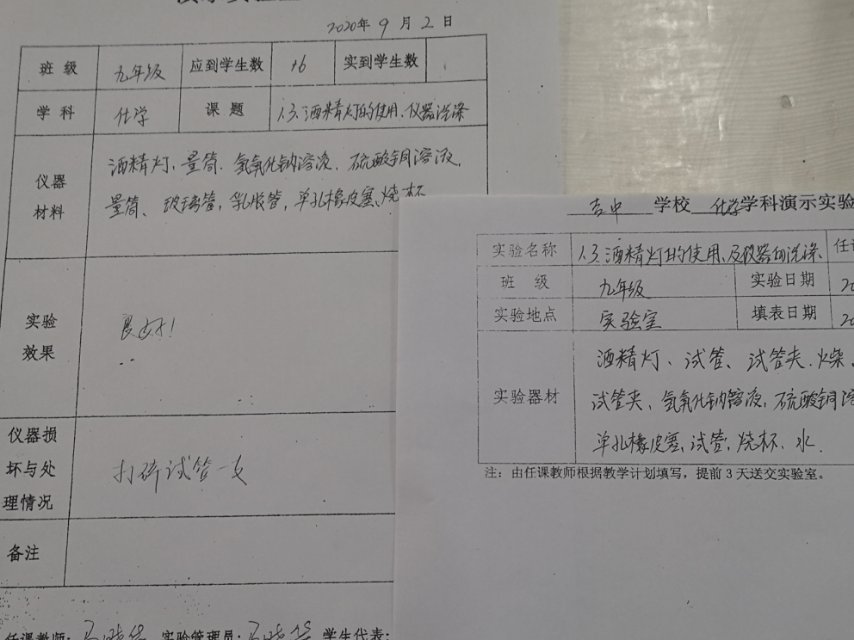 2020年9月2日
班 级 九年级 应到学生数 16 实到学生数
学 科 化学 课 题 1.3.酒精灯的使用、仪器洗涤
仪器材料
酒精灯, 量筒. 氢氧化钠溶液. 硫酸铜溶液,
量筒、玻璃管, 乳胶管, 单孔橡皮塞、烧杯
实验效果
良好!
仪器损坏与处理情况
打碎试管一支
备注
任课教师: 实验管理员: 学生代表:
学校 化学 学科演示实验
实验名称 1.3.酒精灯的使用、及仪器的洗涤.
班 级 九年级 实验日期
实验地点 实验室 填表日期
实验器材
酒精灯、试管、试管夹.
试管夹、氢氧化钠溶液, 硫酸铜溶
单孔橡皮塞, 试管, 烧杯、水.
注：由任课教师根据教学计划填写，提前3天送交实验室。